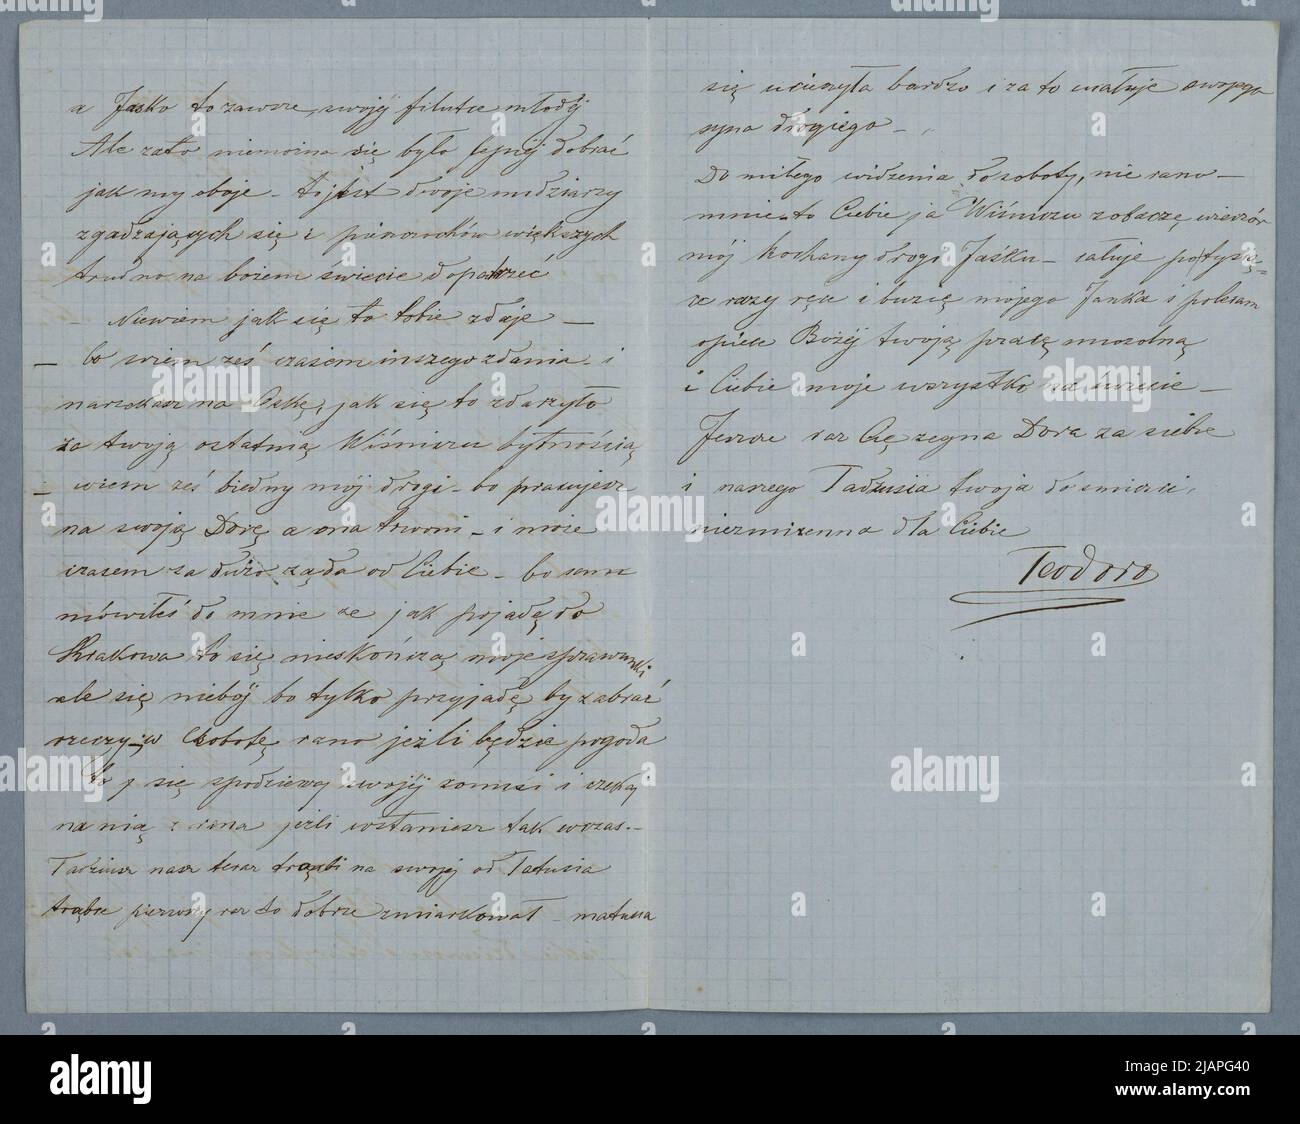 a Jaśko to zawsze swojéj filutce młodéj
Ale zato niemożna się było lepiéj dobrać
jak my oboje - to jest dwoje nudziarzy
zgadzających się i pieszczochów większych
trudno na bożem świecie dopatrzeć
Niewiem jak się to tobie zdaje -
- bo wiem żeś czasem inszego zdania i
narzekasz na Cśkę, jak się to zdarzyło
za twoją ostatnią Wiśniczu bytnością
- wiem żeś biedny mój drogi - bo pracujesz
na swoją Dorę a ona trwoni - i może
czasem za dużo żąda od Ciebie - bo sam
mówiłeś do mnie że jak pojadę do
Krakowa to się nieskończą moje sprawunki
ale się niebój bo tylko przyjadę by zabrać
rzeczy - w Sobotę rano jeżli będzie pogoda
to się spodziewaj swojéj żonusi i czekaj
na nią z rana jeżli wstaniesz tak wczas. -
Tadziusz nasz teraz trąbi na swojéj od Tatusia
trąbce pierwszy raz to dobrze zmiarkował - matusia
się ucieszyła bardzo i za to całuje swojego
syna drogiego -
Do miłego widzenia do soboty, nie rano -
mnie to Ciebie ja Wiśniczu zobaczę wieczór
mój kochany drogi Jaśku - całuje po tysią-
ce razy ręce i buzię mojego Janka i polecam
opiece Bożéj twoją pracę mozolną
i Ciebie moje wszystko na świecie -
Jeszcze raz Cię żegna Dora za siebie
i naszego Tadzusia twoja do śmierci,
niezmienna dla Ciebie
Teodora
alamy
Image ID: 2JAPG40
www.alamy.com